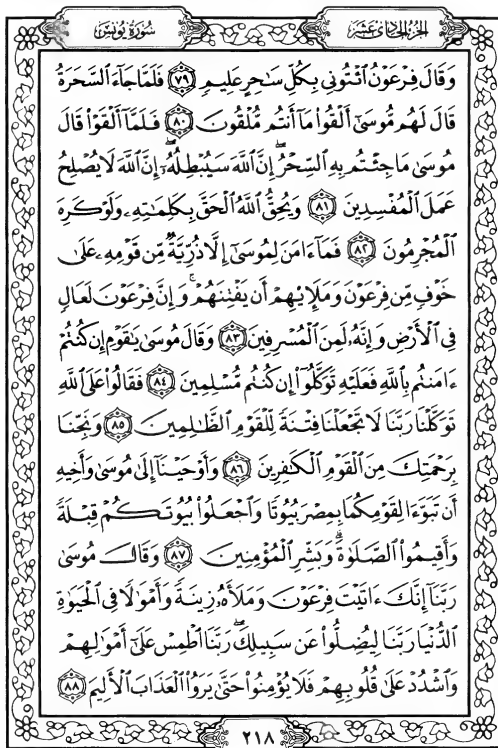 سُورَةُ يُونُسَ
الجُزْءُ الحَادِي عَشَرَ
وَقَالَ فِرْعَوْنُ ٱئْتُونِي بِكُلِّ سَٰحِرٍ عَلِيمٍ ۝٧٩ فَلَمَّا جَآءَ ٱلسَّحَرَةُ
قَالَ لَهُم مُّوسَىٰٓ أَلْقُوا۟ مَآ أَنتُم مُّلْقُونَ ۝٨٠ فَلَمَّآ أَلْقَوْا۟ قَالَ
مُوسَىٰ مَا جِئْتُم بِهِ ٱلسِّحْرُ ۖ إِنَّ ٱللَّهَ سَيُبْطِلُهُۥٓ ۖ إِنَّ ٱللَّهَ لَا يُصْلِحُ
عَمَلَ ٱلْمُفْسِدِينَ ۝٨١ وَيُحِقُّ ٱللَّهُ ٱلْحَقَّ بِكَلِمَٰتِهِۦ وَلَوْ كَرِهَ
ٱلْمُجْرِمُونَ ۝٨٢ فَمَآ ءَامَنَ لِمُوسَىٰٓ إِلَّا ذُرِّيَّةٌ مِّن قَوْمِهِۦ عَلَىٰ
خَوْفٍ مِّن فِرْعَوْنَ وَمَلَإِي۟هِمْ أَن يَفْتِنَهُمْ ۚ وَإِنَّ فِرْعَوْنَ لَعَالٍ
فِي ٱلْأَرْضِ وَإِنَّهُۥ لَمِنَ ٱلْمُسْرِفِينَ ۝٨٣ وَقَالَ مُوسَىٰ يَٰقَوْمِ إِن كُنتُمْ
ءَامَنتُم بِٱللَّهِ فَعَلَيْهِ تَوَكَّلُوٓا۟ إِن كُنتُم مُّسْلِمِينَ ۝٨٤ فَقَالُوا۟ عَلَى ٱللَّهِ
تَوَكَّلْنَا رَبَّنَا لَا تَجْعَلْنَا فِتْنَةً لِّلْقَوْمِ ٱلظَّٰلِمِينَ ۝٨٥ وَنَجِّنَا
بِرَحْمَتِكَ مِنَ ٱلْقَوْمِ ٱلْكَٰفِرِينَ ۝٨٦ وَأَوْحَيْنَآ إِلَىٰ مُوسَىٰ وَأَخِيهِ
أَن تَبَوَّءَا لِقَوْمِكُمَا بِمِصْرَ بُيُوتًا وَٱجْعَلُوا۟ بُيُوتَكُمْ قِبْلَةً
وَأَقِيمُوا۟ ٱلصَّلَوٰةَ ۗ وَبَشِّرِ ٱلْمُؤْمِنِينَ ۝٨٧ وَقَالَ مُوسَىٰ
رَبَّنَآ إِنَّكَ ءَاتَيْتَ فِرْعَوْنَ وَمَلَأَهُۥ زِينَةً وَأَمْوَٰلًا فِي ٱلْحَيَوٰةِ
ٱلدُّنْيَا رَبَّنَا لِيُضِلُّوا۟ عَن سَبِيلِكَ ۖ رَبَّنَا ٱطْمِسْ عَلَىٰٓ أَمْوَٰلِهِمْ
وَٱشْدُدْ عَلَىٰ قُلُوبِهِمْ فَلَا يُؤْمِنُوا۟ حَتَّىٰ يَرَوُا۟ ٱلْعَذَابَ ٱلْأَلِيمَ ۝٨٨
٢١٨